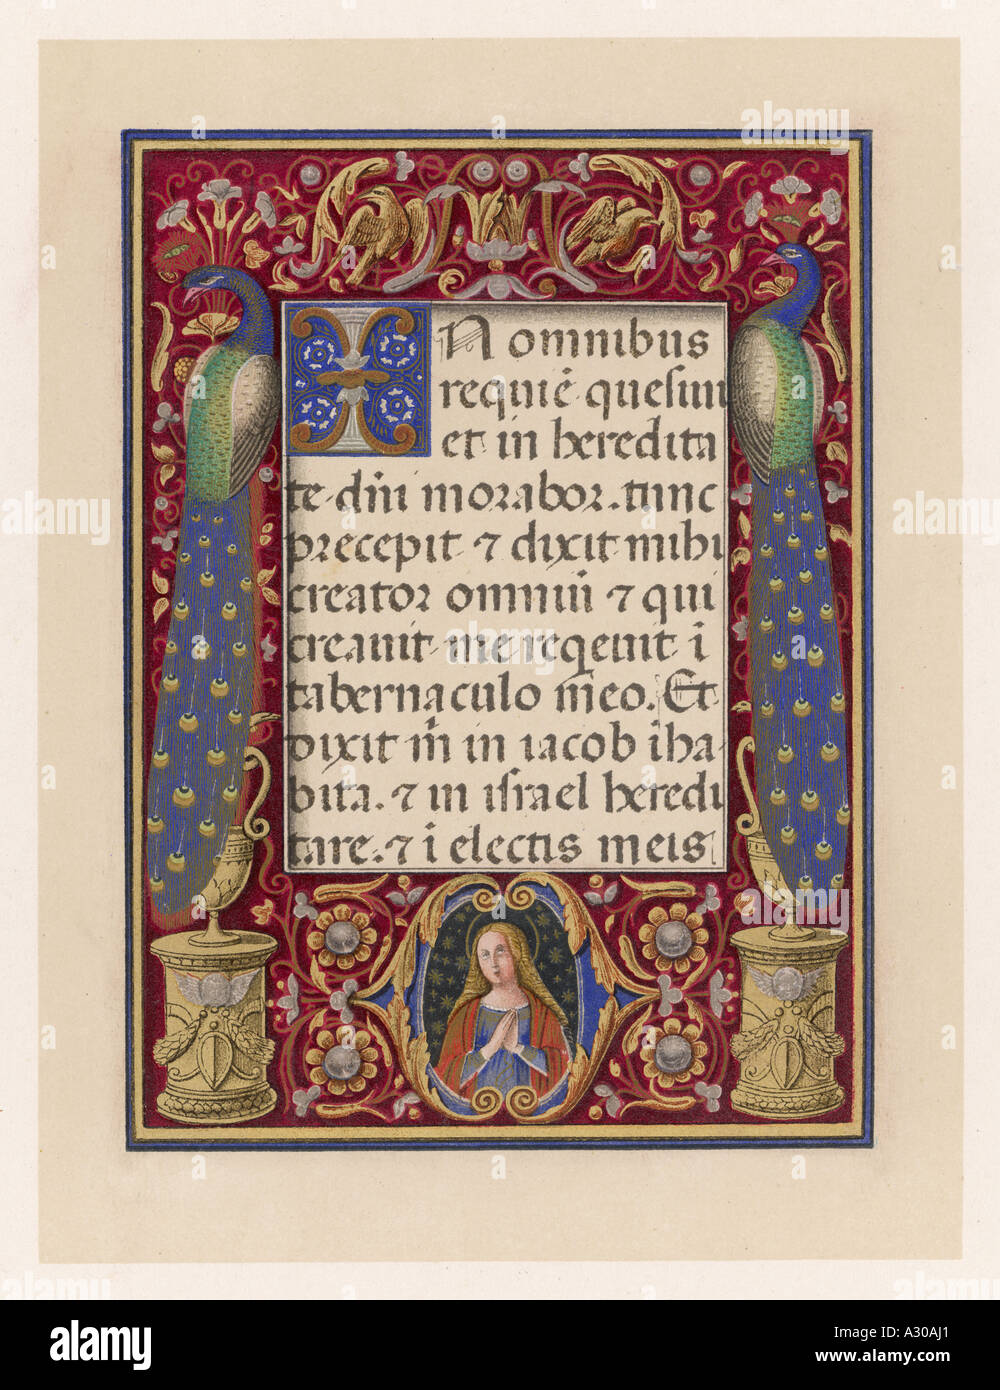 IN omnibus
requiē quesiui
et in heredita
te dn̄i morabor. tunc
precepit ⁊ dixit mihi
creator omniū ⁊ qui
creauit me reqeuit ī
tabernaculo meo. Et
dixit m̄ in iacob iha-
bita. ⁊ in israel heredi
tare. ⁊ ī electis meis
alamy
alamy
Image ID: A30AJ1
www.alamy.com